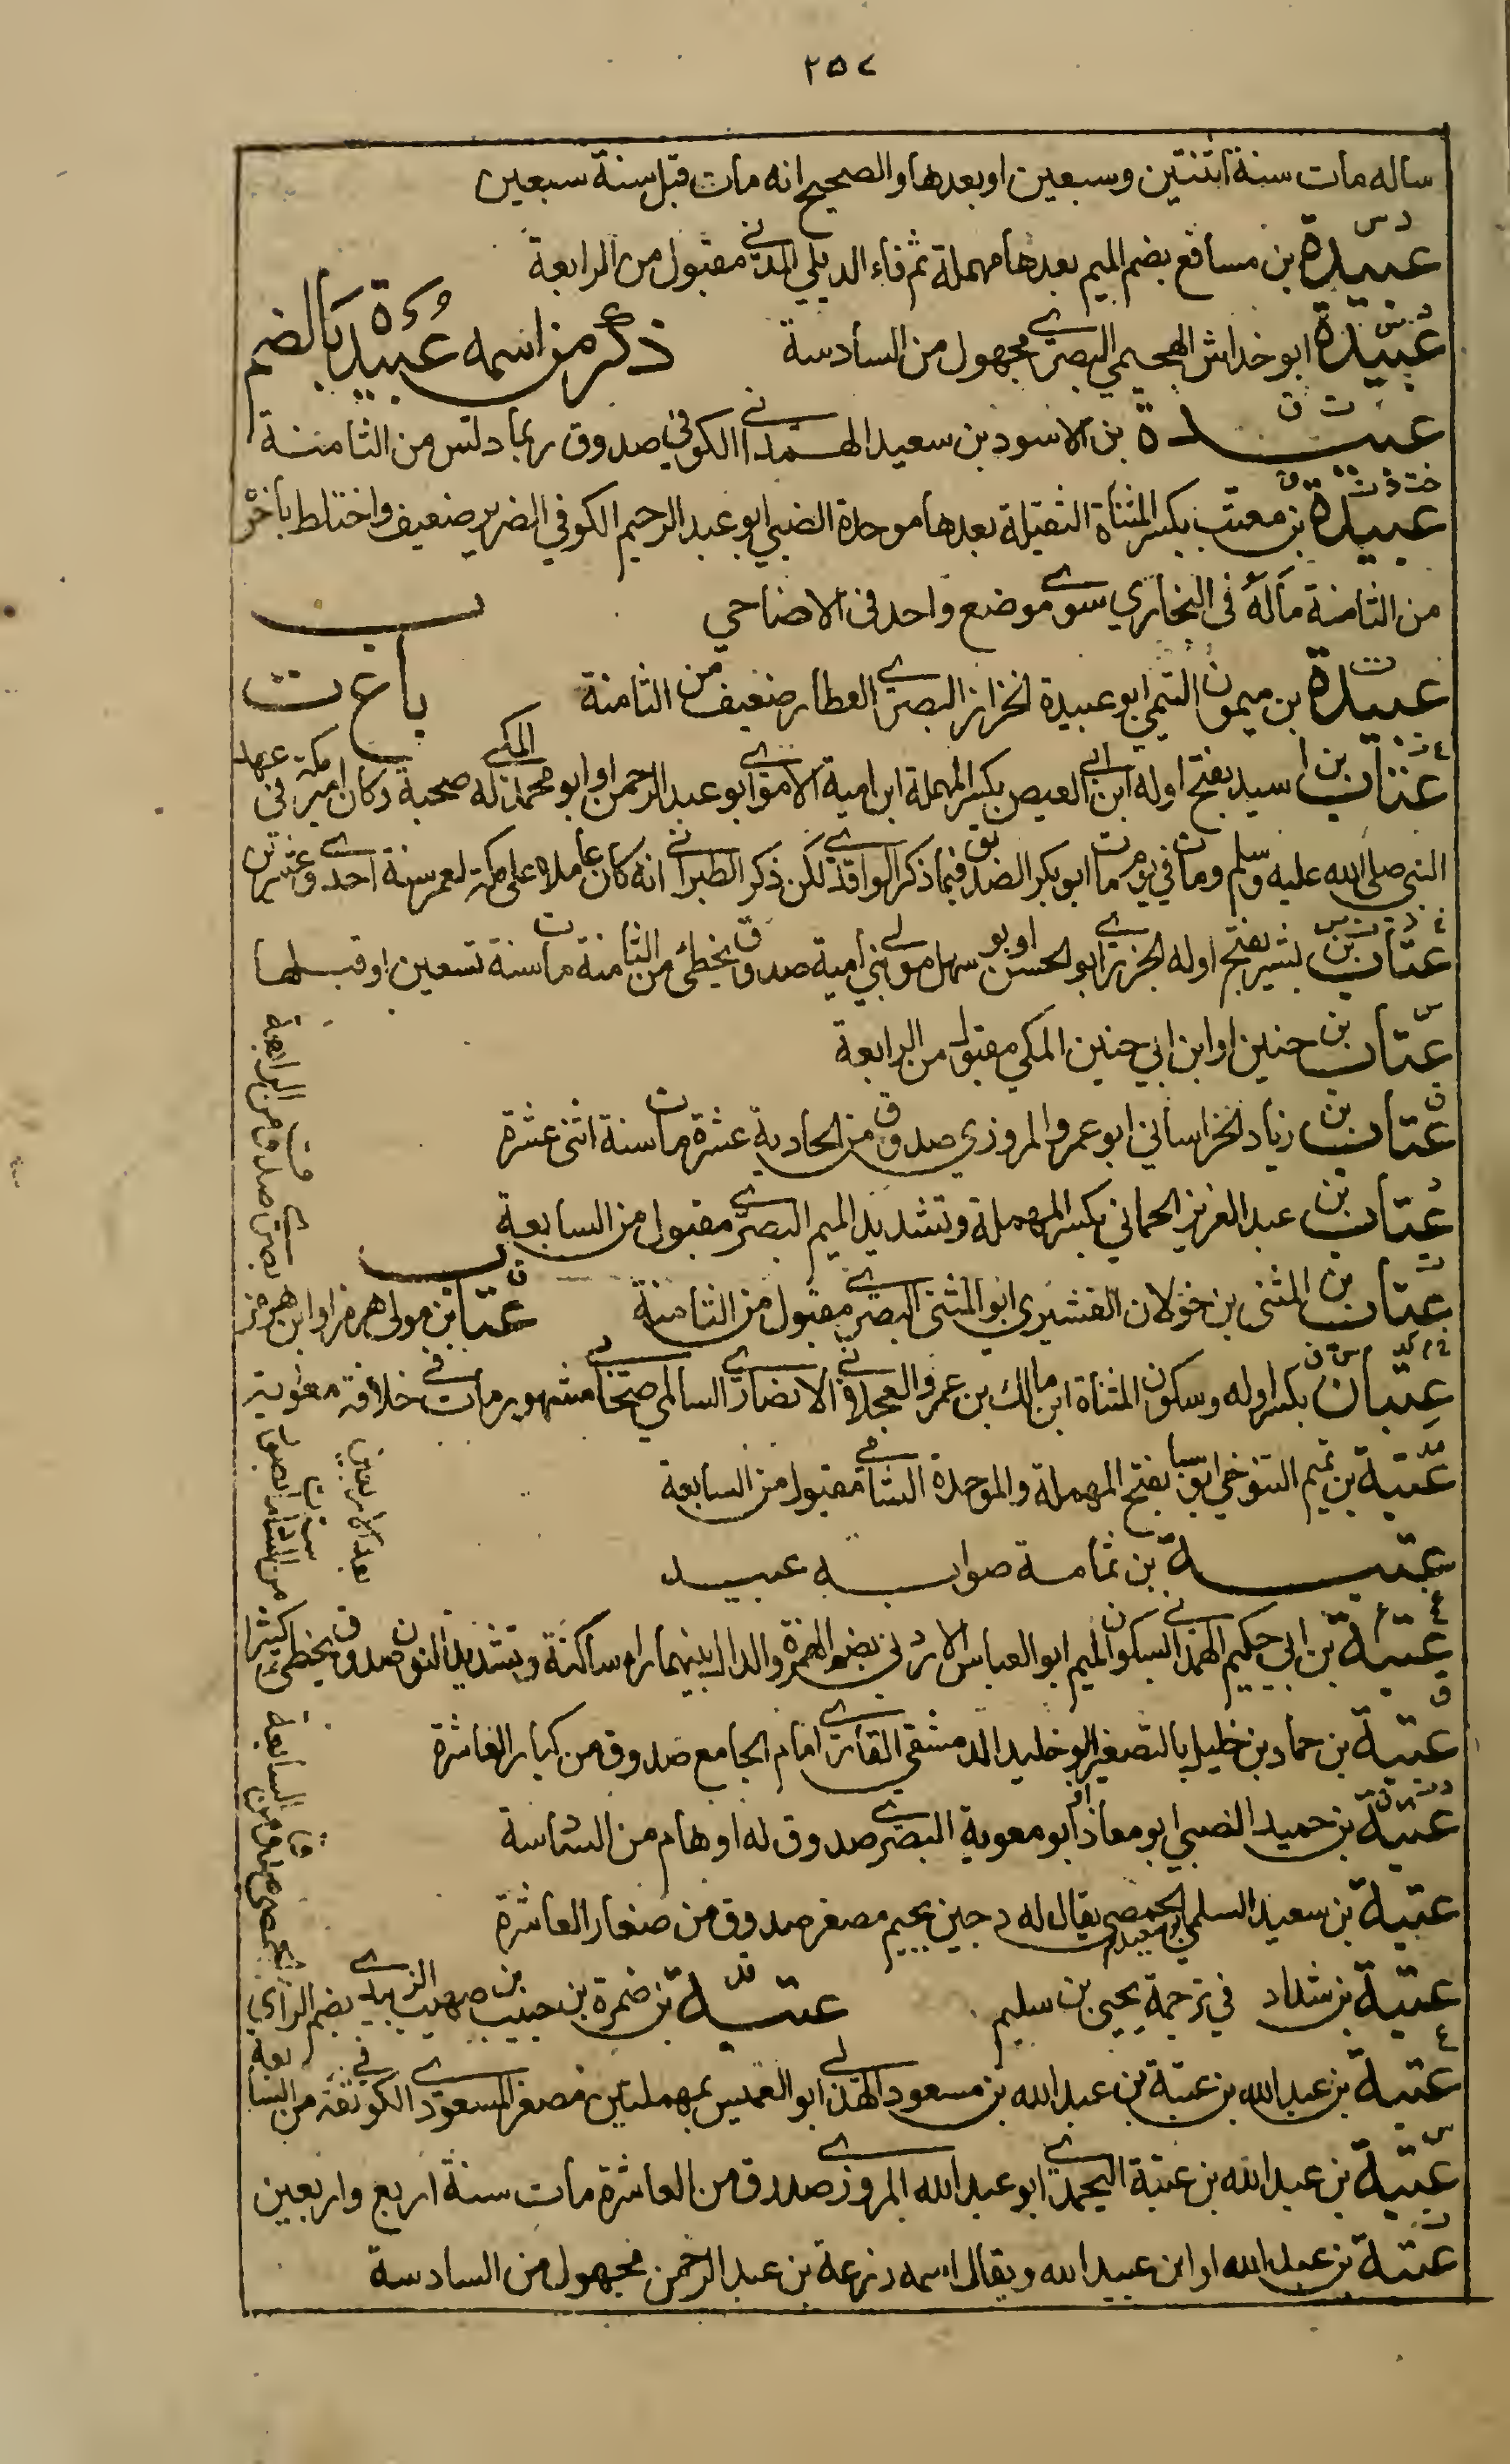 ٢٥٧
ساله مات سنة اثنتين وسبعين او بعدها والصحيح انه مات قبل سنة سبعين
د س
عبيدة بن مسافع بضم الميم بعدها مهملة ثم فاء الديلي المدني مقبول من الرابعة
د س
عبيدة ابو خداش الهجيمي البصري مجهول من السادسة
ذكر من اسمه عُبيدة بالضم
ت ق
عبيدة بن الاسود بن سعيد الهمداني الكوفي صدوق ربما دلس من الثامنة
خت د ت ق
عبيدة بن معتب بكسر المثناة الثقيلة بعدها موحدة الضبي ابو عبد الرحيم الكوفي الضرير ضعيف واختلط بأخرة
من الثامنة ماله في البخاري سوى موضع واحد في الاضاحي
ت
عبيدة بن ميمون التيمي ابو عبيدة الخزاز البصري العطار ضعيف من الثامنة
باب ع ت
٤
عتاب بن اسيد بفتح اوله ابن ابي العيص بكسر المهملة ابن امية الاموي ابو عبد الرحمن او ابو محمد المكي له صحبة وكان امير مكة في عهد
النبي صلى الله عليه وسلم ومات في يوم مات ابو بكر الصديق فيما ذكر الواقدي لكن ذكر الطبراني انه كان عاملا على مكة لعمر سنة احدى وعشرين
خ د ت س
عتاب بن بشير بفتح اوله الجزري ابو الحسن او ابو سهل مولى بني امية صدوق يخطئ من الثامنة مات سنة تسعين او قبلها
س
عتاب بن حنين او ابن ابي حنين المكي مقبول من الرابعة
ق
عتاب بن زياد الخراساني ابو عمرو المروزي صدوق من الحادية عشرة مات سنة اثنى عشرة
د
عتاب بن عبد العزيز الحماني بكسر المهملة وتشديد الميم البصري مقبول من السابعة
ت
عتاب بن المثنى بن خولان القشيري ابو المثنى البصري مقبول من الثامنة
ق
عتاب مولى هرمز او ابن هرمز
بصري صدوق من الرابعة
خ م كد س ق
عتبان بكسر اوله وسكون المثناة ابن مالك بن عمرو العجلاني الانصاري السالمي صحابي مشهور مات في خلافة معوية
مد
عتبة بن تميم التنوخي ابو سبا بفتح المهملة والموحدة الشامي مقبول من السابعة
عتبة بن ثمامة صوابه عبيد
عخ ٤
عتبة بن ابي حكيم الهمداني بسكون الميم ابو العباس الاردني بضم الهمزة والدال بينهما راء ساكنة وتشديد النون صدوق يخطئ كثيرا
من السادسة مات بصور بعد الاربعين
ق
عتبة بن حماد بن خليل بالتصغير ابو خليد الدمشقي القارئ امام الجامع صدوق من كبار العاشرة
د ت ق
عتبة بن حميد الضبي ابو معاذ او ابو معوية البصري صدوق له اوهام من السادسة
عتبة بن سعيد السلمي الحمصي ابو سعيد يقال له دجين بجيم مصغر صدوق من صغار العاشرة
عتبة بن شداد في ترجمة يحيى بن سليم
قد
عتبة بن ضمرة بن حبيب بن صهيب الزبيدي بضم الزاي
الحمصي صدوق من السابعة
٤
عتبة بن عبد الله بن عتبة بن عبد الله بن مسعود الهذلي ابو العميس بمهملتين مصغر المسعودي الكوفي ثقة من السابعة
س
عتبة بن عبد الله بن عتبة اليحمدي ابو عبد الله المروزي صدوق من العاشرة مات سنة اربع واربعين
ت
عتبة بن عبد الله او ابن عبيد الله ويقال اسمه زرعة بن عبد الرحمن مجهول من السادسة